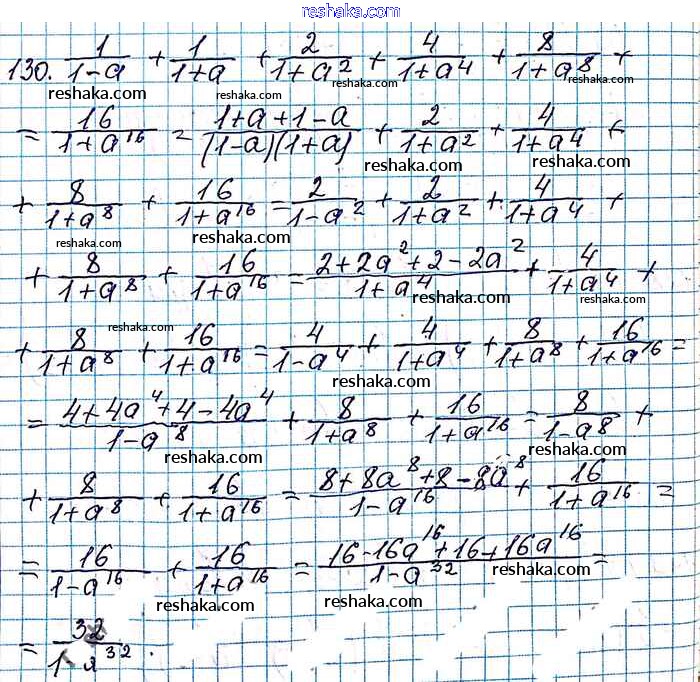 reshaka.com
130. 1/(1-a) + 1/(1+a) + 2/(1+a²) + 4/(1+a⁴) + 8/(1+a⁸) +
reshaka.com reshaka.com reshaka.com
= 16/(1+a¹⁶) = (1+a+1-a)/((1-a)(1+a)) + 2/(1+a²) + 4/(1+a⁴) +
reshaka.com reshaka.com reshaka.com
+ 8/(1+a⁸) + 16/(1+a¹⁶) = 2/(1-a²) + 2/(1+a²) + 4/(1+a⁴) +
reshaka.com reshaka.com reshaka.com
+ 8/(1+a⁸) + 16/(1+a¹⁶) = (2+2a²+2-2a²)/(1+a⁴) + 4/(1+a⁴) +
reshaka.com reshaka.com reshaka.com
+ 8/(1+a⁸) + 16/(1+a¹⁶) = 4/(1-a⁴) + 4/(1+a⁴) + 8/(1+a⁸) + 16/(1+a¹⁶) =
reshaka.com reshaka.com reshaka.com
= (4+4a⁴+4-4a⁴)/(1-a⁸) + 8/(1+a⁸) + 16/(1+a¹⁶) = 8/(1-a⁸) +
reshaka.com reshaka.com reshaka.com
+ 8/(1+a⁸) + 16/(1+a¹⁶) = (8+8a⁸+8-8a⁸)/(1-a¹⁶) + 16/(1+a¹⁶) =
reshaka.com reshaka.com reshaka.com
= 16/(1-a¹⁶) + 16/(1+a¹⁶) = (16-16a¹⁶+16+16a¹⁶)/(1-a³²) =
reshaka.com reshaka.com reshaka.com
= 32/(1-a³²).